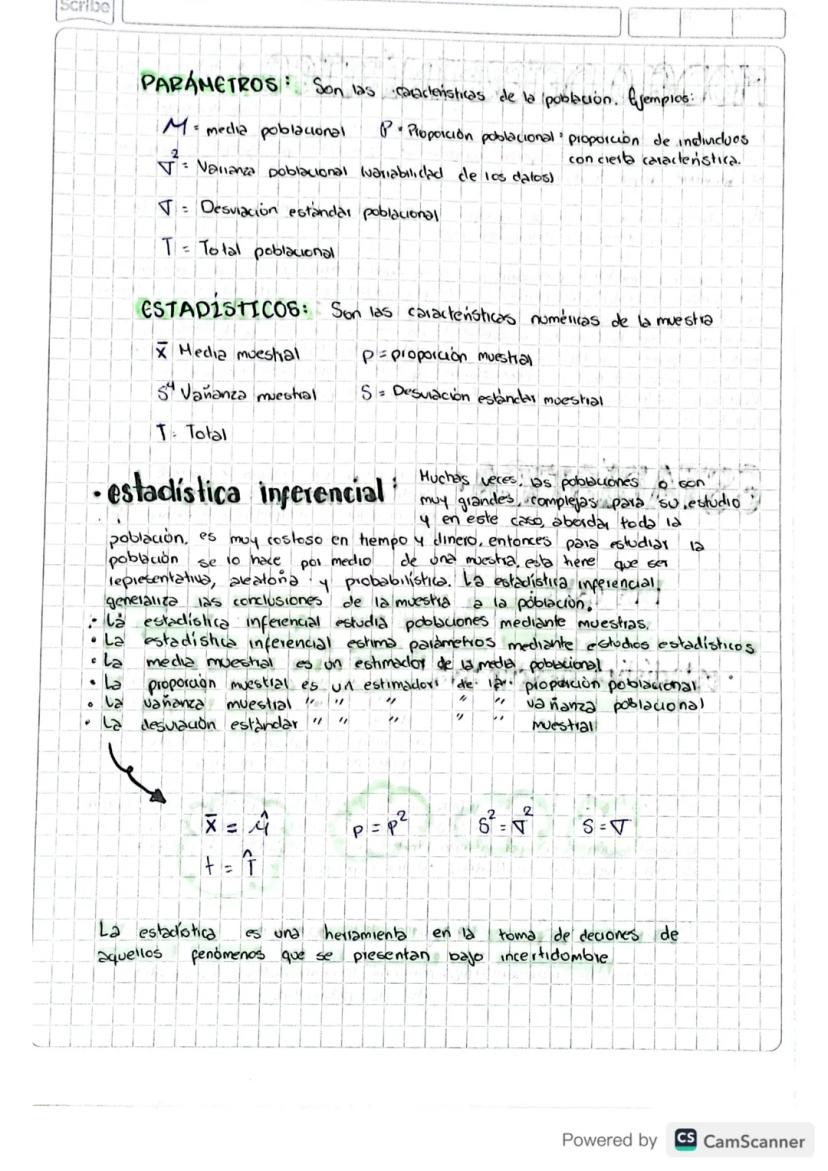 Scribe
PARÁMETROS: Son las características de la población. Ejemplos:
M = media poblacional P = Proporción poblacional: proporción de individuos
con cierta característica.
∇² = Varianza poblacional (variabilidad de los datos)
∇ = Desviación estándar poblacional
T = Total poblacional
ESTADÍSTICOS: Son las características numéricas de la muestra
x̄ Media muestral p = proporción muestral
S⁴ Varianza muestral S = Desviación estándar muestral
T = Total
• estadística inferencial: Muchas veces, las poblaciones o son
muy grandes, complejas para su estudio
y en este caso, abordar toda la
población, es muy costoso en tiempo y dinero, entonces para estudiar la
población se lo hace por medio de una muestra, esta tiene que ser
representativa, aleatoria y probabilística. La estadística inferencial,
generaliza las conclusiones de la muestra a la población.
• La estadística inferencial estudia poblaciones mediante muestras.
• La estadística inferencial estima parámetros mediante estudios estadísticos
• La media muestral es un estimador de la media poblacional
• La proporción muestral es un estimador de la proporción poblacional
• La varianza muestral " " " " " varianza poblacional
• La desviación estándar " " " " " muestral
x̄ = μ̂ p = p² S² = ∇² S = ∇
t = T̂
La estadística es una herramienta en la toma de deciones de
aquellos fenómenos que se presentan bajo incertidombre
Powered by CS CamScanner